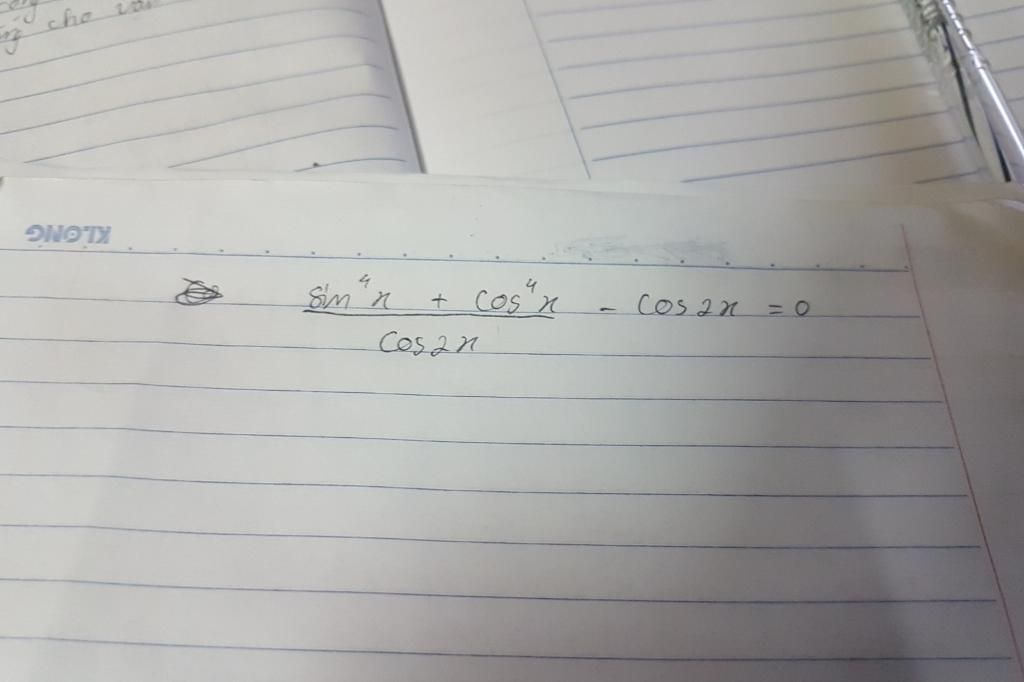 cho văn
KLONG
sin⁴x + cos⁴x - cos2x = 0
cos2x